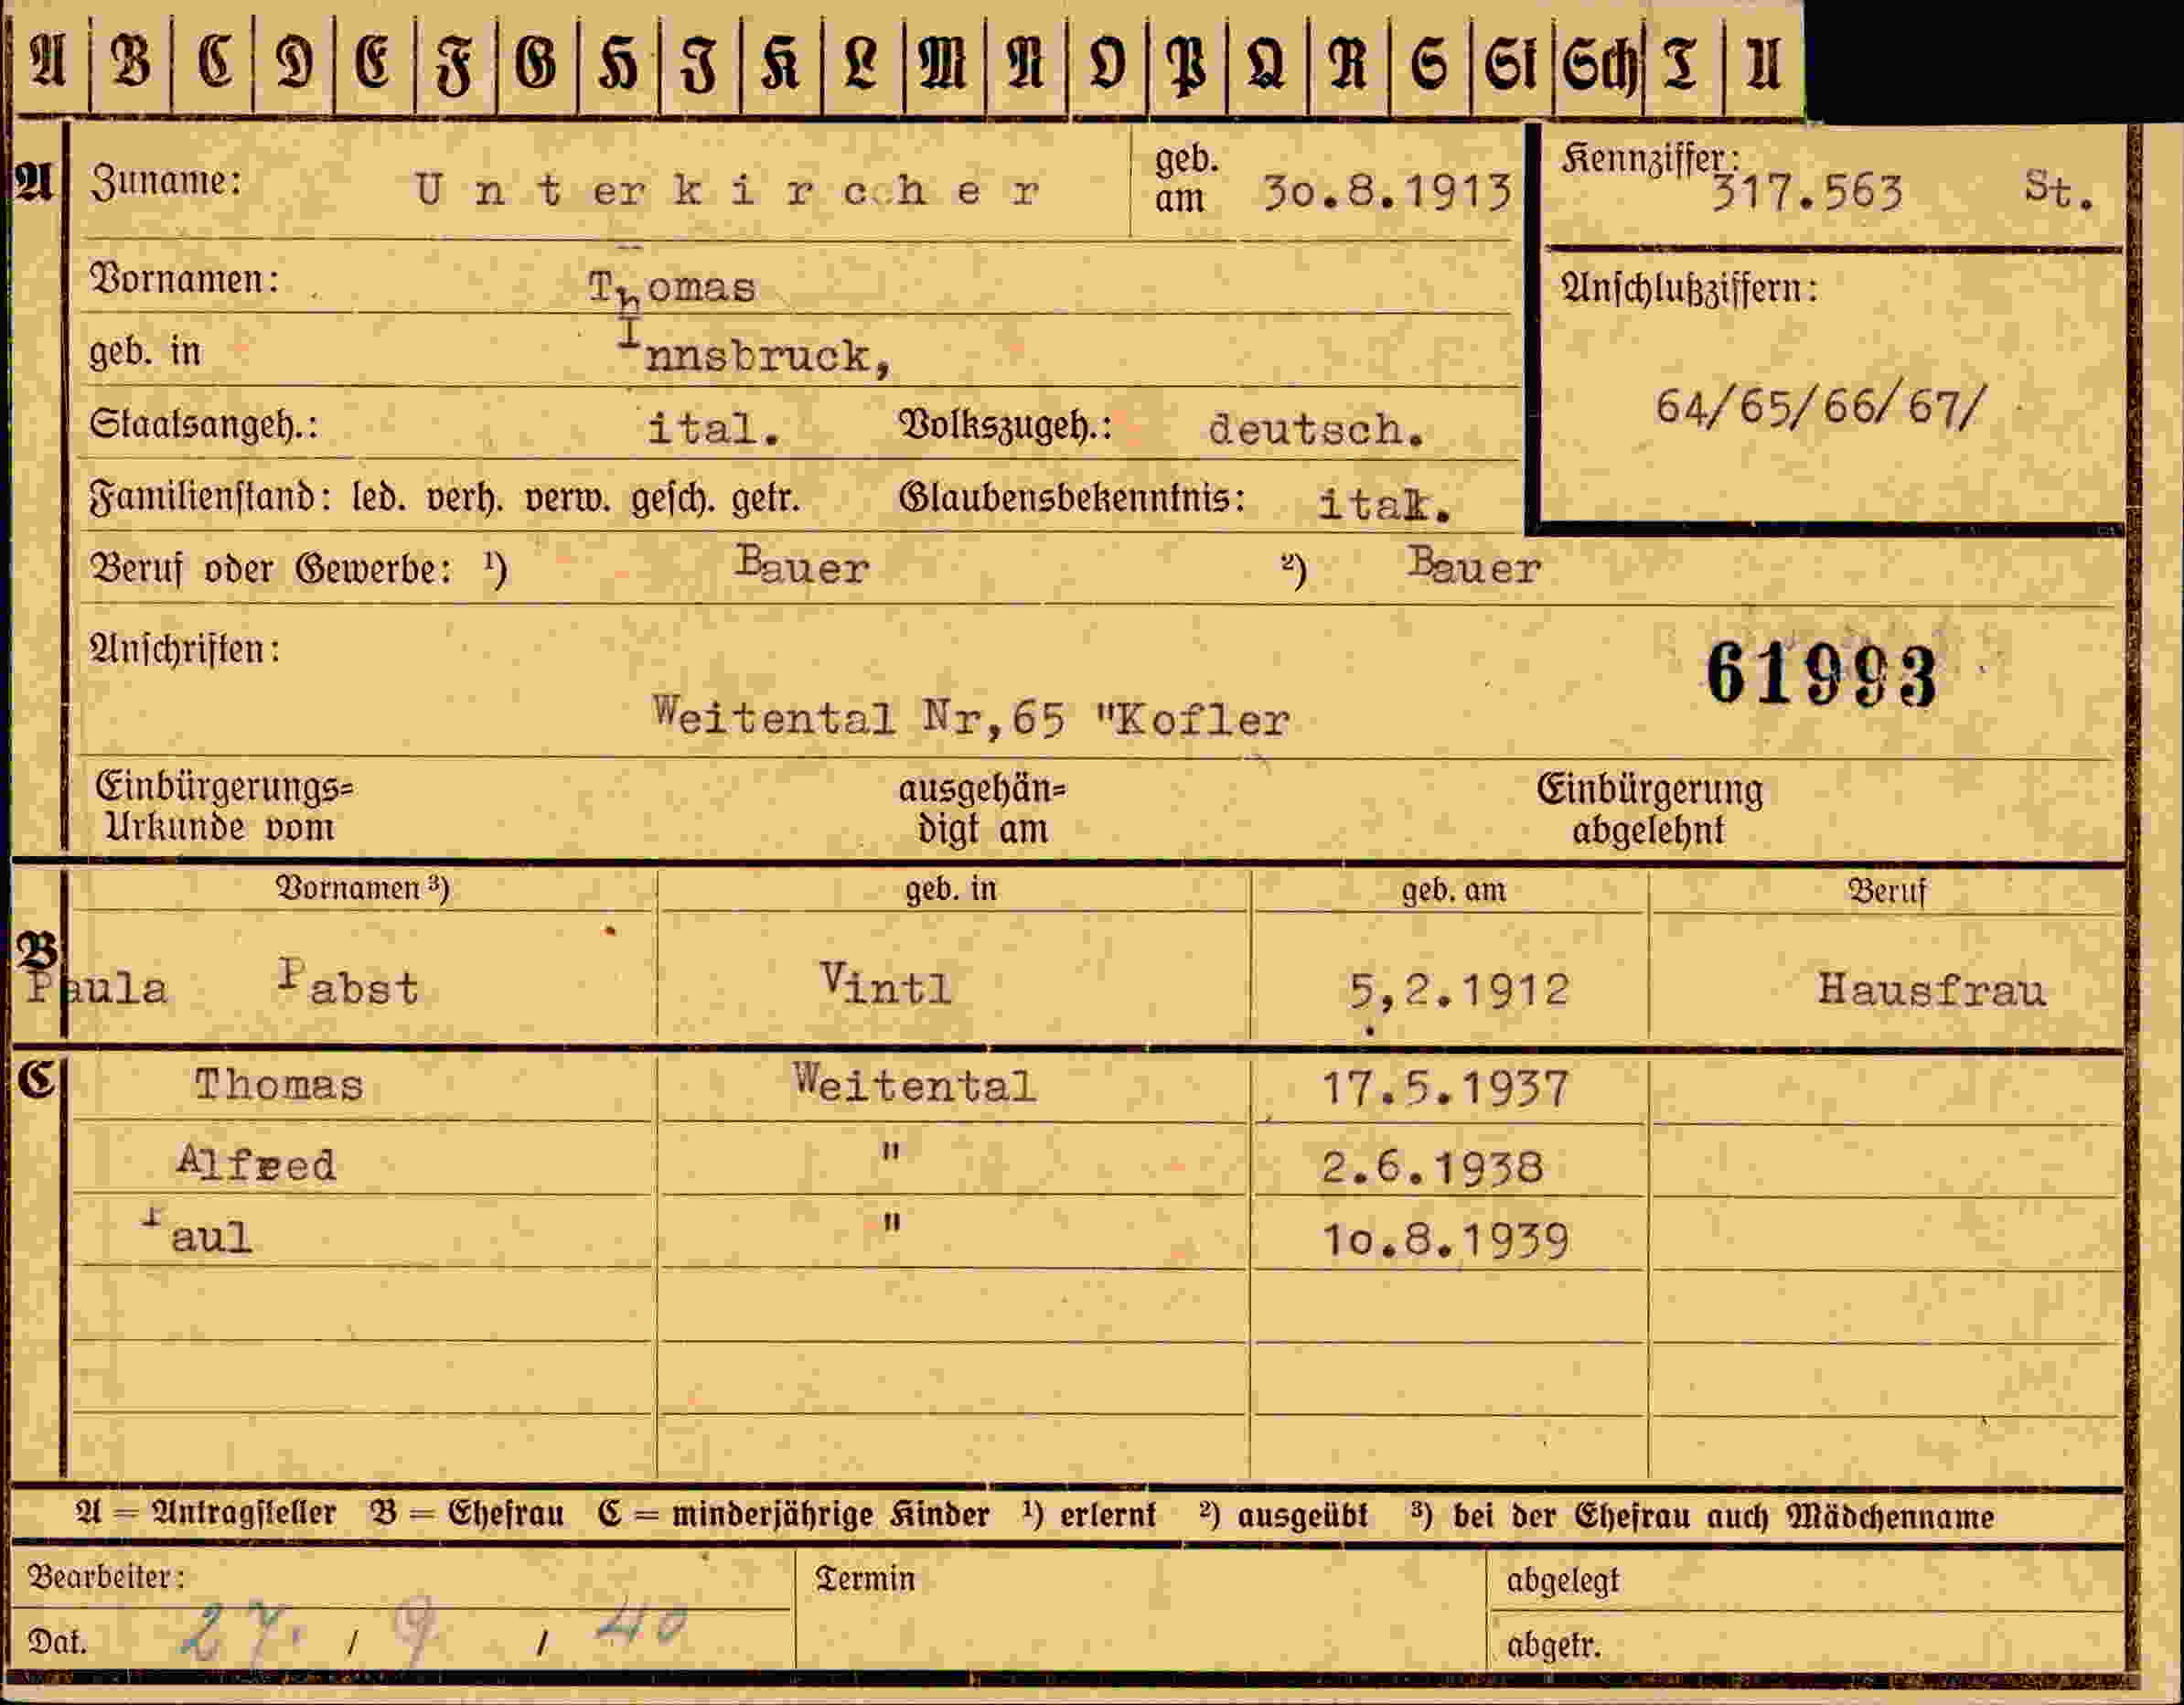 A B C D E F G H I K L M N O P Q R S St Sch T U
A Zuname: Unterkircher geb. am 30.8.1913 Kennziffer: 317.563 St.
Vornamen: Thomas Anschlußziffern:
geb. in Innsbruck,
64/65/66/67/
Staatsangeh.: ital. Volkszugeh.: deutsch.
Familienstand: led. verh. verw. gesch. getr. Glaubensbekenntnis:
Beruf oder Gewerbe: ¹) Bauer ²) Bauer
Anschriften: 61993
Weitental Nr,65 "Kofler
Einbürgerungs= ausgehän= Einbürgerung
Urkunde vom digt am abgelehnt
Vornamen ³) geb. in geb. am Beruf
B
Paula Pabst Vintl 5,2.1912 Hausfrau
C Thomas Weitental 17.5.1937
Alfred " 2.6.1938
Paul " 10.8.1939
A = Antragsteller B = Ehefrau C = minderjährige Kinder ¹) erlernt ²) ausgeübt ³) bei der Ehefrau auch Mädchenname
Bearbeiter: Termin abgelegt
Dat. 27. / 9 / 40 abgetr.